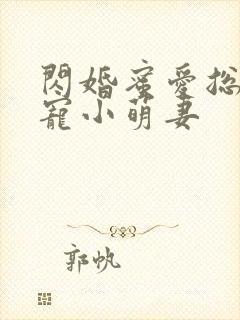 閃婚蜜愛總
寵小萌妻
郭帆